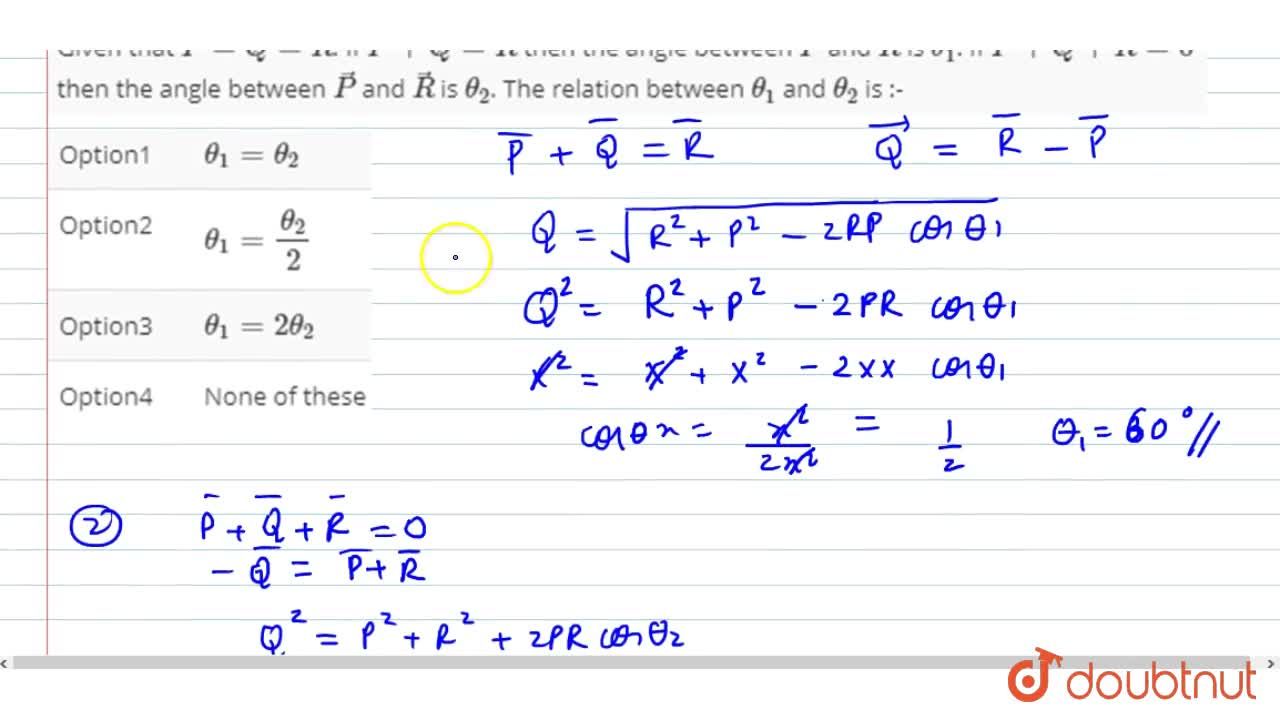 Given that P = Q = R. If P + Q = R then the angle between P and R is θ₁. If P + Q + R = 0
then the angle between P⃗ and R⃗ is θ₂. The relation between θ₁ and θ₂ is :-
Option1 θ₁ = θ₂
Option2 θ₁ = θ₂/2
Option3 θ₁ = 2θ₂
Option4 None of these
P̅ + Q̅ = R̅
Q⃗ = R̅ − P̅
Q = √(R² + P² − 2RP cosθ₁)
Q² = R² + P² − 2PR cosθ₁
x² = x² + x² − 2xx cosθ₁
cosθx = x²/2x² = 1/2 θ₁ = 60°//
② P̅ + Q̅ + R̅ = 0
− Q̅ = P̅ + R̅
Q² = P² + R² + 2PR cosθ₂
doubtnut